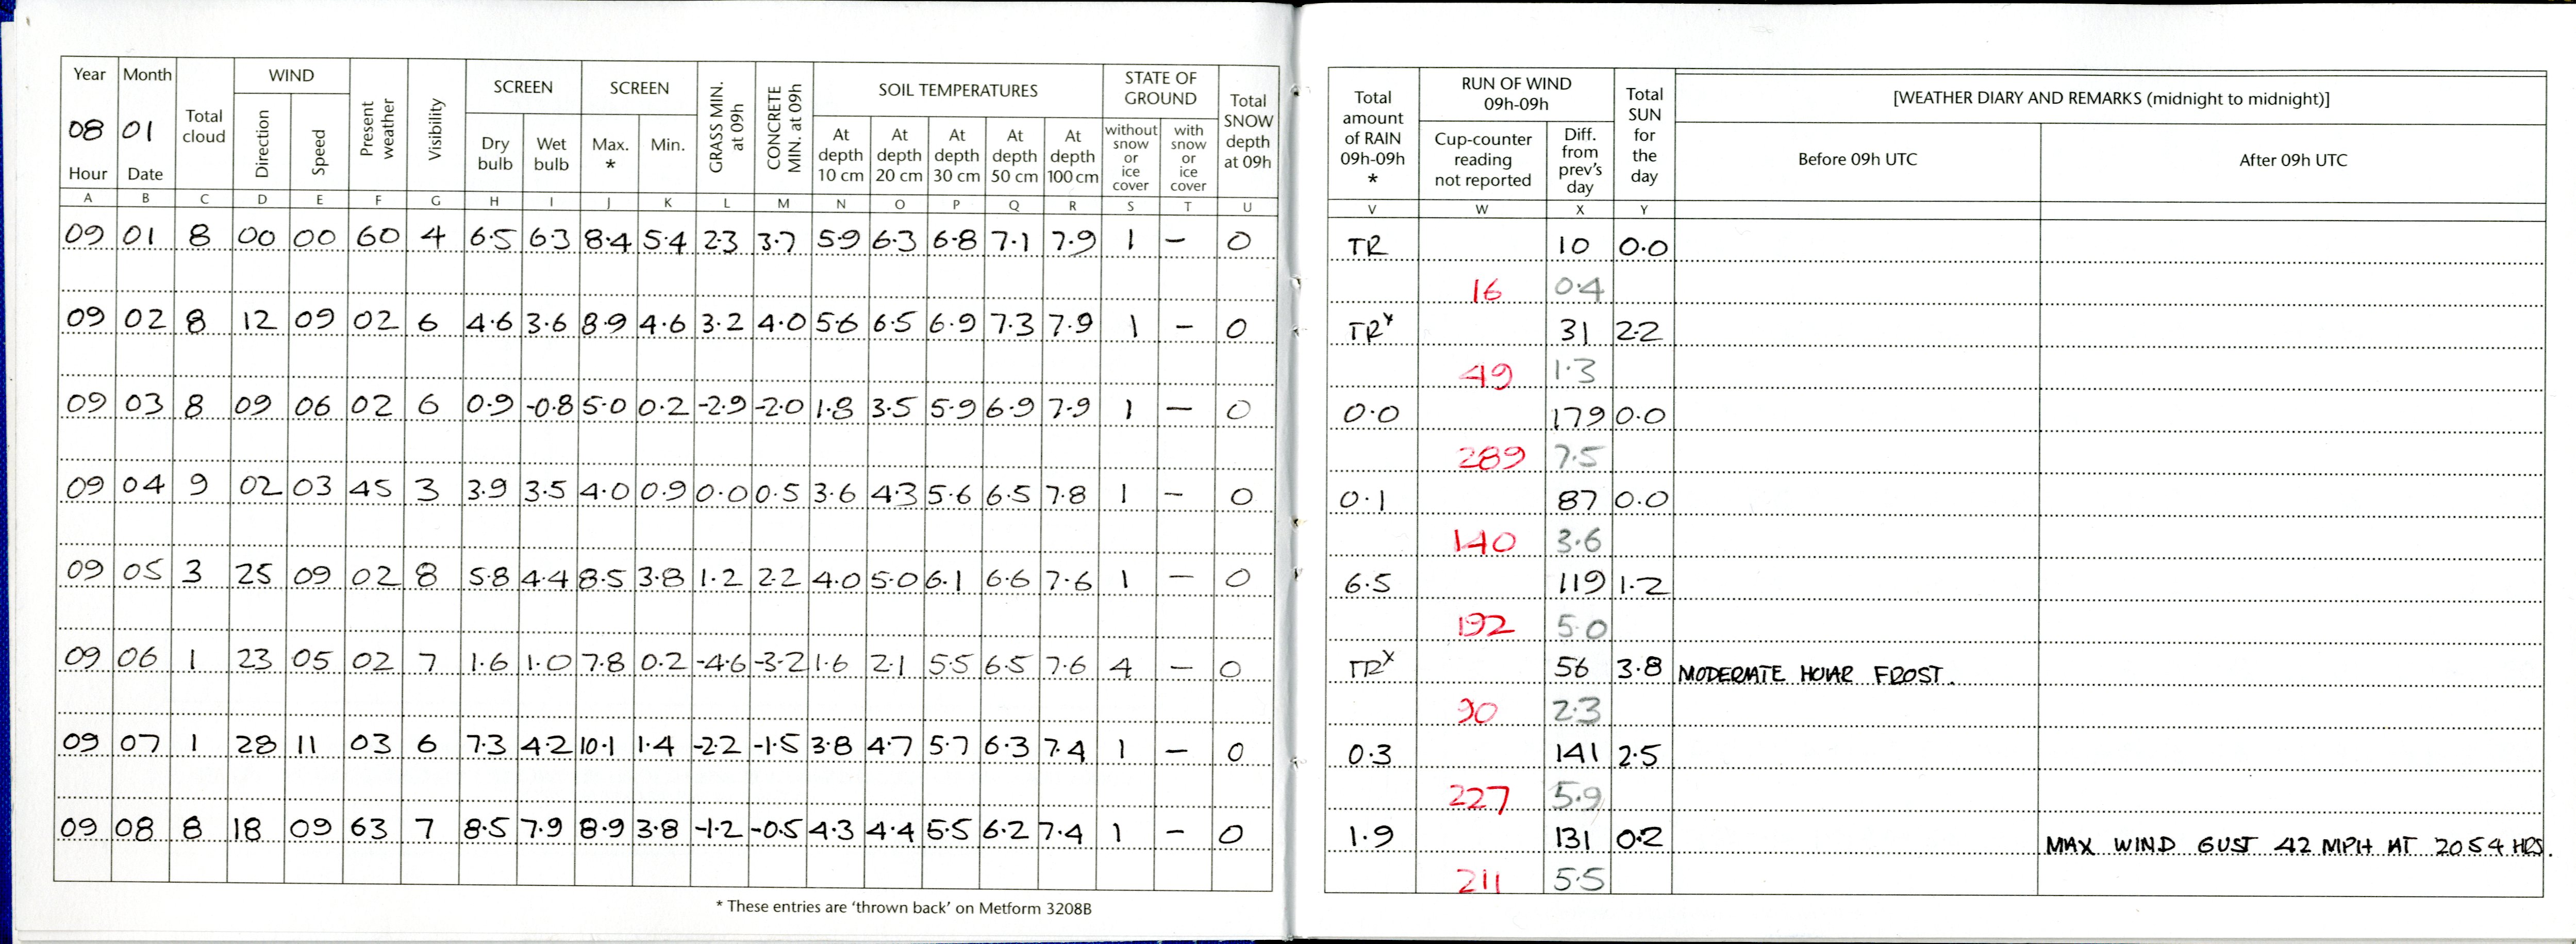 Year Month Total cloud WIND Present weather Visibility SCREEN SCREEN GRASS MIN. at 09h CONCRETE MIN. at 09h SOIL TEMPERATURES STATE OF GROUND Total SNOW depth at 09h
08 01 Direction Speed Dry bulb Wet bulb Max. * Min. At depth 10 cm At depth 20 cm At depth 30 cm At depth 50 cm At depth 100 cm without snow or ice cover with snow or ice cover
Hour Date
A B C D E F G H I J K L M N O P Q R S T U
09 01 8 00 00 60 4 6.5 6.3 8.4 5.4 2.3 3.7 5.9 6.3 6.8 7.1 7.9 1 – 0
09 02 8 12 09 02 6 4.6 3.6 8.9 4.6 3.2 4.0 5.6 6.5 6.9 7.3 7.9 1 – 0
09 03 8 09 06 02 6 0.9 -0.8 5.0 0.2 -2.9 -2.0 1.8 3.5 5.9 6.9 7.9 1 – 0
09 04 9 02 03 45 3 3.9 3.5 4.0 0.9 0.0 0.5 3.6 4.3 5.6 6.5 7.8 1 – 0
09 05 3 25 09 02 8 5.8 4.4 8.5 3.8 1.2 2.2 4.0 5.0 6.1 6.6 7.6 1 – 0
09 06 1 23 05 02 7 1.6 1.0 7.8 0.2 -4.6 -3.2 1.6 2.1 5.5 6.5 7.6 4 – 0
09 07 1 28 11 03 6 7.3 4.2 10.1 1.4 -2.2 -1.5 3.8 4.7 5.7 6.3 7.4 1 – 0
09 08 8 18 09 63 7 8.5 7.9 8.9 3.8 -1.2 -0.5 4.3 4.4 5.5 6.2 7.4 1 – 0
* These entries are 'thrown back' on Metform 3208B
Total amount of RAIN 09h-09h * RUN OF WIND 09h-09h Total SUN for the day [WEATHER DIARY AND REMARKS (midnight to midnight)]
Cup-counter reading not reported Diff. from prev's day Before 09h UTC After 09h UTC
V W X Y
TR 10 0.0
16 0.4
TRx 31 2.2
49 1.3
0.0 179 0.0
289 7.5
0.1 87 0.0
140 3.6
6.5 119 1.2
192 5.0
TRx 56 3.8 MODERATE HOAR FROST.
90 2.3
0.3 141 2.5
227 5.9
1.9 131 0.2 MAX WIND GUST 42 MPH AT 2054 HRS.
211 5.5